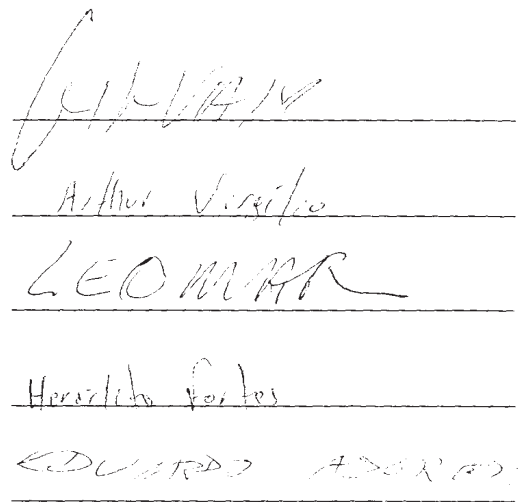 GILVAN
Arthur Virgílio
LEOMAR
Heráclito Fortes
EDUARDO AZEREDO